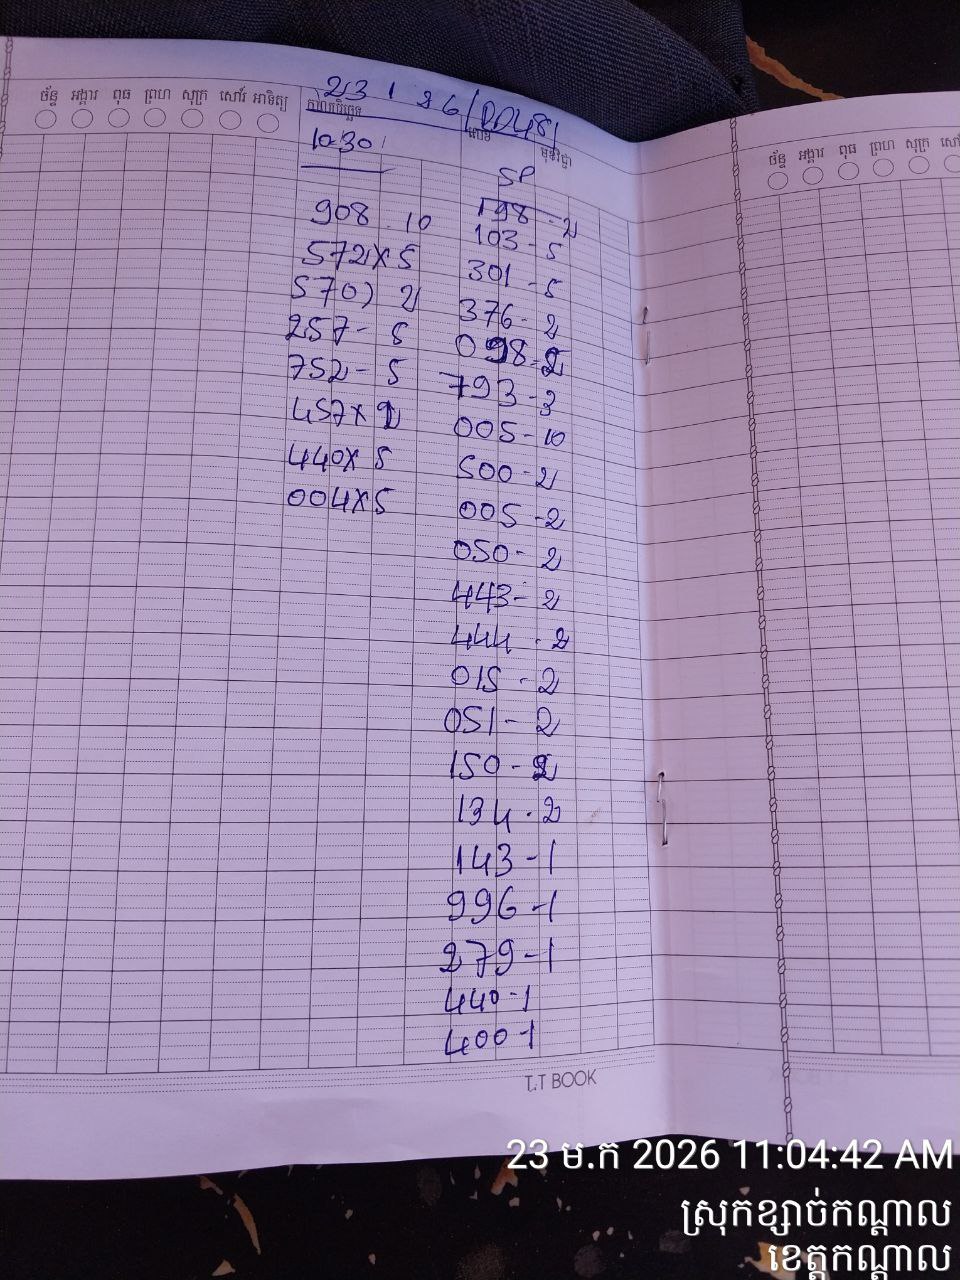 23 1 26/DDU81
ច័ន្ទ អង្គារ ពុធ ព្រហ សុក្រ សៅរ៍ អាទិត្យ
កាលបរិច្ឆេទ
មុខវិជ្ជា
ច័ន្ទ អង្គារ ពុធ ព្រហ សុក្រ សៅ
10:30
908 - 10
572 x 5
570) 2
257 - 5
752 - 5
457 x 2
440 x 5
004 x 5
SP
198 - 2
103 - 5
301 - 5
376 - 2
098 - 2
793 - 3
005 - 10
500 - 2
005 - 2
050 - 2
443 - 2
444 - 2
015 - 2
051 - 2
150 - 2
134 - 2
143 - 1
996 - 1
279 - 1
440 - 1
400 - 1
T.T BOOK
23 ម.ក 2026 11:04:42 AM
ស្រុកខ្សាច់កណ្ដាល
ខេត្តកណ្ដាល